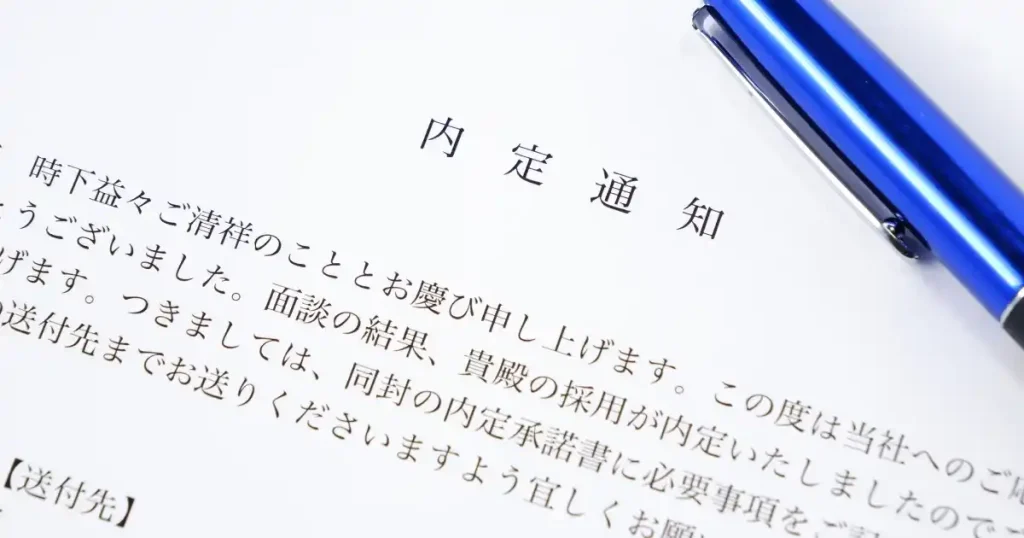 内定通知
時下益々ご清祥のこととお慶び申し上げます。この度は当社へのご応
うございました。面談の結果、貴殿の採用が内定いたしましたので
げます。つきましては、同封の内定承諾書に必要事項をご記
送付先までお送りくださいますよう宜しくお願
【送付先】